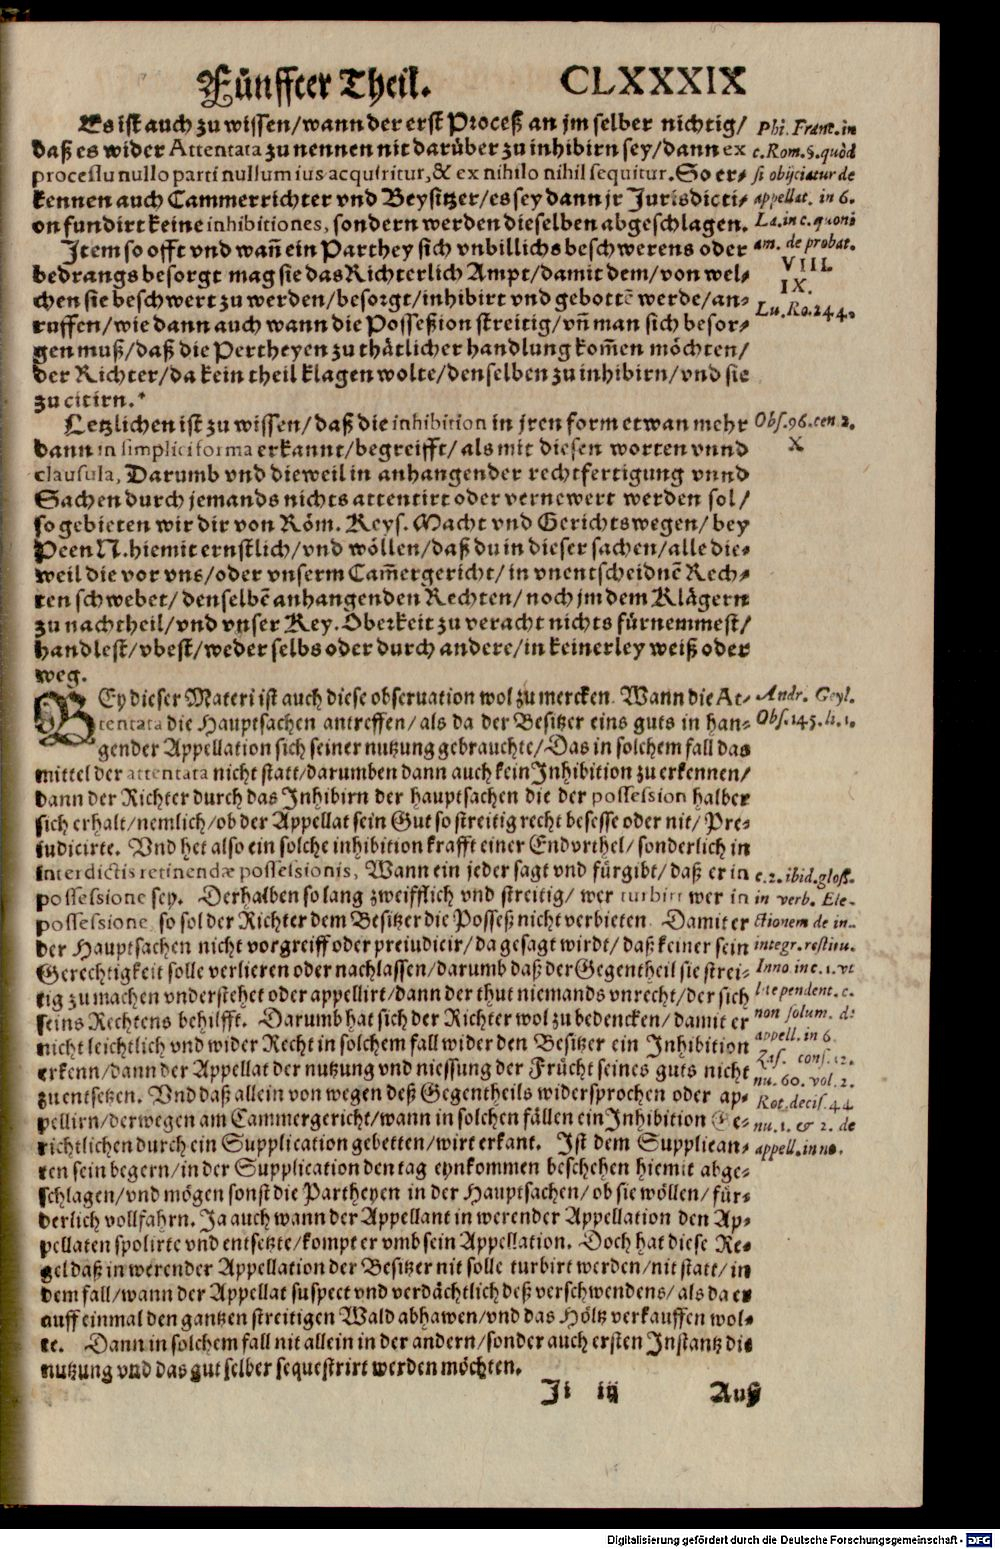 Fünffter Theil. CLXXXIX
Es ist auch zu wissen/wann der erst Proceß an jm selber nichtig/
daß es wider Attentata zu nennen nit darüber zu inhibirn sey/dann ex
processu nullo parti nullum ius acquiritur, & ex nihilo nihil sequitur. So er-
kennen auch Cammerrichter vnd Beysitzer/es sey dann jr Jurisdicti-
on fundirt keine inhibitiones, sondern werden dieselben abgeschlagen.
Jtem so offt vnd wañ ein Parthey sich vnbillichs beschwerens oder
bedrangs besorgt mag sie das Richterlich Ampt/damit dem/von wel-
chen sie beschwert zu werden/besorgt/inhibirt vnd gebottē werde/an-
ruffen/wie dann auch wann die Possession streitig/vñ man sich besor-
gen muß/daß die Pertheyen zu thätlicher handlung kom̃en möchten/
der Richter/da kein theil klagen wolte/denselben zu inhibirn/vnd sie
zu citirn.*
Letzlichen ist zu wissen/daß die inhibition in jren form etwan mehr
dann in simplici forma erkannt/begreifft/als mit diesen worten vnnd
clausula, Darumb vnd dieweil in anhangender rechtfertigung vnnd
Sachen durch jemands nichts attentirt oder vernewert werden sol/
so gebieten wir dir von Röm. Keys. Macht vnd Gerichts wegen/bey
Peen N. hiemit ernstlich/vnd wöllen/daß du in dieser sachen/alle die-
weil die vor vns/oder vnserm Cam̃ergericht/in vnentscheidnē Rech-
ten schwebet/denselbē anhangenden Rechten/noch jm dem Klägern
zu nachtheil/vnd vnser Key. Oberkeit zu veracht nichts fürnemmest/
handlest/vbest/weder selbs oder durch andere/in keinerley weiß oder
weg.
BEy dieser Materi ist auch diese obseruation wol zu mercken. Wann die At-
tentata die Hauptsachen antreffen/als da der Besitzer eins guts in han-
gender Appellation sich seiner nutzung gebrauchte/Das in solchem fall das
mittel der attentata nicht statt/darumben dann auch kein Inhibition zu erkennen/
dann der Richter durch das Inhibirn der hauptsachen die der possession halber
sich erhalt/nemlich/ob der Appellat sein Gut so streitig recht besesse oder nit/Pre-
iudicirte. Vnd het also ein solche inhibition krafft einer Endvrthel/sonderlich in
interdictis retinendæ possessionis, Wann ein jeder sagt vnd fürgibt/daß er in
possessione sey. Derhalben so lang zweifflich vnd streitig/wer turbirt wer in
possessione, so sol der Richter dem Besitzer die Posseß nicht verbieten. Damit er
der Hauptsachen nicht vorgreiff oder preiudicir/da gesagt wirdt/daß keiner sein
Gerechtigkeit solle verlieren oder nachlassen/darumb daß der Gegentheil sie strei-
tig zu machen vnderstehet oder appellirt/dann der thut niemands vnrecht/der sich
seins Rechtens behilfft. Darumb hat sich der Richter wol zu bedencken/damit er
nicht leichtlich vnd wider Recht in solchem fall wider den Besitzer ein Inhibition
erkenn/dann der Appellat der nutzung vnd niessung der Frücht seines guts nicht
zu entsetzen. Vnd daß allein von wegen deß Gegentheils widersprochen oder ap-
pellirn/derwegen am Cammergericht/wann in solchen fällen ein Inhibition Ge-
richtlichen durch ein Supplication gebetten/wirt erkant. Ist dem Supplican-
ten sein begern/in der Supplication den tag eynkommen beschehen hiemit abge-
schlagen/vnd mögen sonst die Partheyen in der Hauptsachen/ob sie wöllen/für-
derlich vollfahrn. Ja auch wann der Appellant in werender Appellation den Ap-
pellaten spolirte vnd entsetzte/kompt er vmb sein Appellation. Doch hat diese Re-
gel daß in werender Appellation der Besitzer nit solle turbirt werden/nit statt/in
dem fall/wann der Appellat suspect vnd verdächtlich deß verschwendens/als da er
auff einmal den gantzen streitigen Wald abhawen/vnd das Höltz verkauffen wol-
te. Dann in solchem fall nit allein in der andern/sonder auch ersten Instantz die
nutzung vnd das gut selber sequestrirt werden möchten.
Ji iij Auß
Phi. Franc. in
c. Rom. §. quòd
si obijciatur de
appellat. in 6.
La. in c. quoni
am. de probat.
VIII.
IX.
Lu. Ro. 244.
Obs. 96. cen 2.
X
Andr. Geyl.
Obs. 145. li. 1.
c. 2. ibid. gloss.
in verb. Ele-
ctionem de in-
integr. restitu.
Inno. in c. 1. vt
lite pendent. c.
non solum. de
appell. in 6.
Zas. cons. 12.
nu. 60. vol. 2.
Rot. decis. 44
nu. 1. & 2. de
appell. in no.
Digitalisierung gefördert durch die Deutsche Forschungsgemeinschaft - DFG